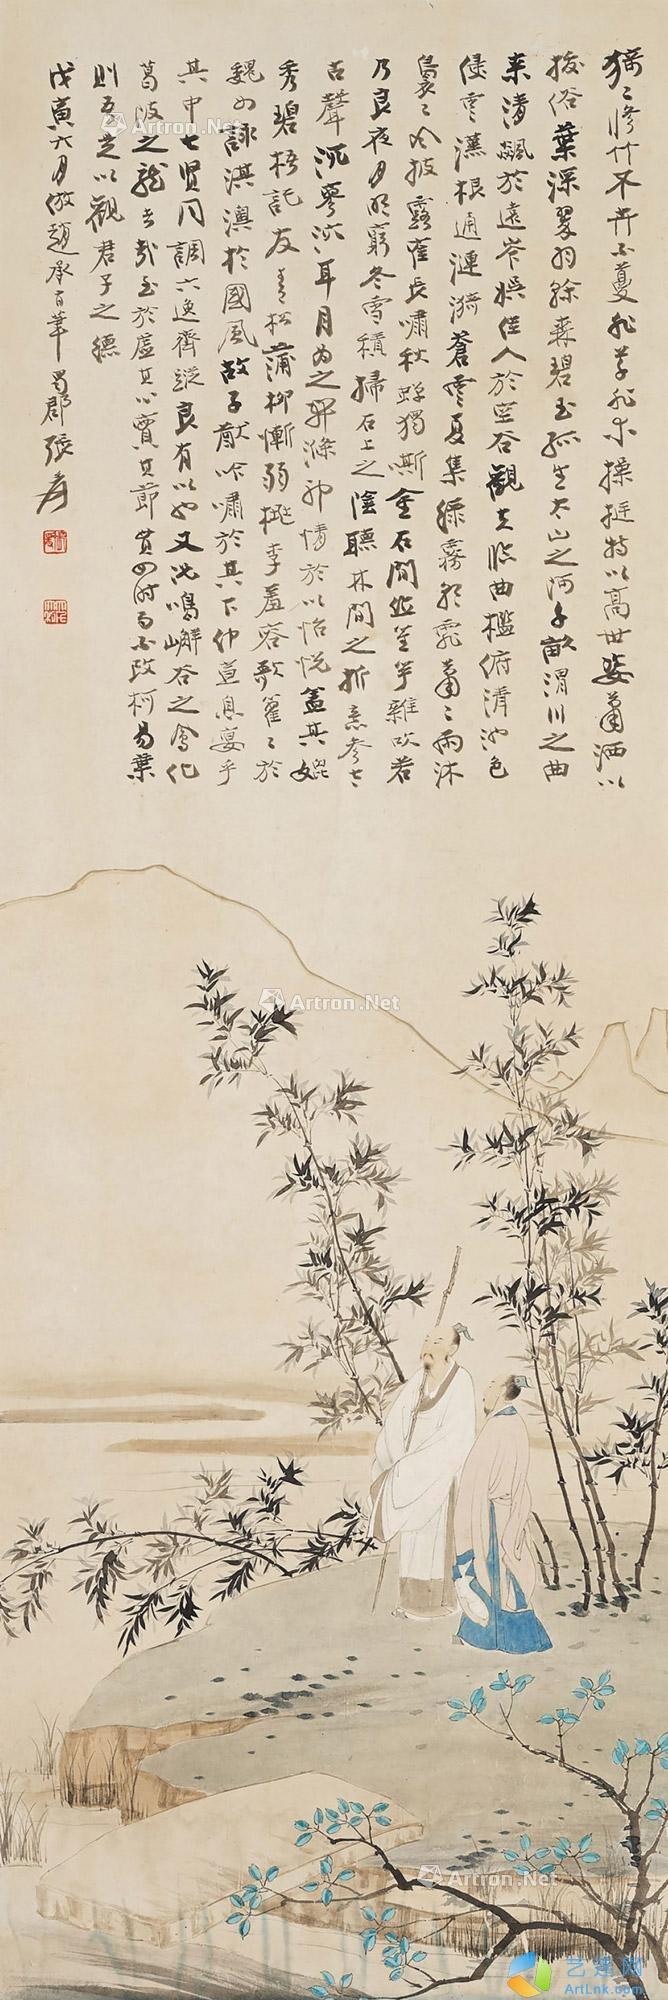 猗〻脩竹不卉不蔓非草非木操挺特以高世姿蕭洒以
拔俗葉深翠羽幹森碧玉孤生太山之阿千畝渭川之曲
来清飈於遠岑娱佳人於空谷觀夫臨曲檻俯清池色
侵雲漢根通漣漪蒼雲夏集緑霧朝霏蕭〻雨沐
裊〻風披露寉長嘯秋蟬獨嘶金石間作笙竽雜吹若
乃良夜月明窮冬雪積掃石上之陰聽林間之折意参太
古聲沉寥泬耳目為之開滌神情於以怡悦蓋其媲
秀碧梧託友青松蒲柳慚弱桃李羞容歌籊〻於
衛女詠淇澳於國風故子猷吟嘯於其下仲宣息宴乎
其中七贤同調六逸齊蹤良有以也又況鳴嶰谷之鳳化
葛陂之龍者哉至於虚其心實其節貫四時而不改柯易葉
則吾是以觀君子之德
戊寅六月倣趙承旨筆蜀郡張爰
Artron.Net
Artron.Net
Artron.Net
艺建网
ArtLnk.com